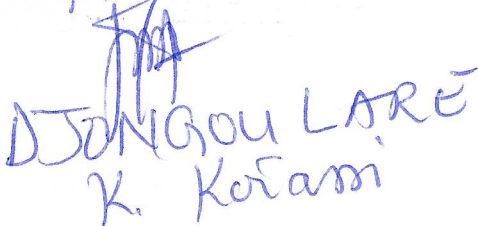 DJONGOU LARE
K. Koïassi